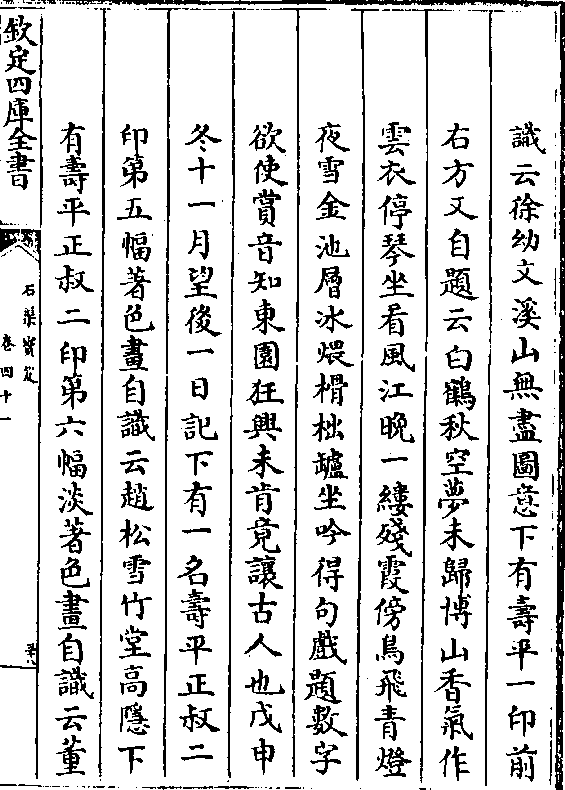 識云徐幼文溪山無盡圖意下有壽平一印前
右方又自題云白鶴秋空夢未歸博山香氣作
雲衣停琴坐看風江晚一縷殘霞傍鳥飛青燈
夜雪金池層冰煨榾柮罏坐吟得句戲題數字
欲使賞音知東園狂興未肯竟讓古人也戊申
冬十一月望後一日記下有一名壽平正叔二
印第五幅著色畫自識云趙松雪竹堂高隱下
有壽平正叔二印第六幅淡著色畫自識云董
欽定四庫全書
石渠寶笈
卷四十一